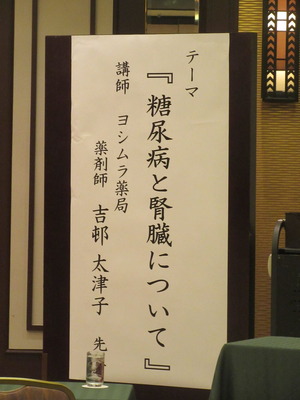 テーマ
『糖尿病と腎臓について』
講師　ヨシムラ薬局
薬剤師　吉邨　太津子　先